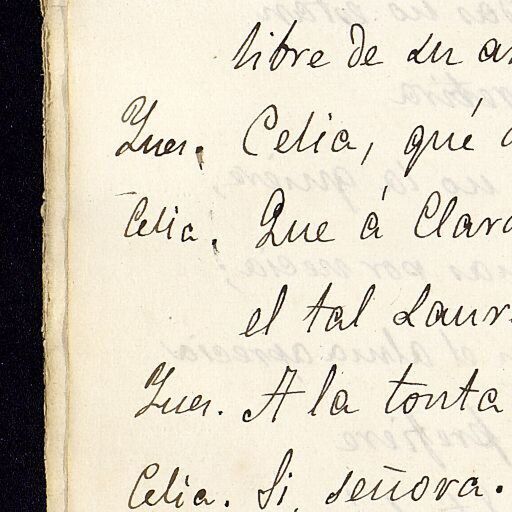 libre de su a
Ynes. Celia, qué
Celia. Que á Clara
el tal Laur
Ynes. A la tonta
Celia. Si, señora.